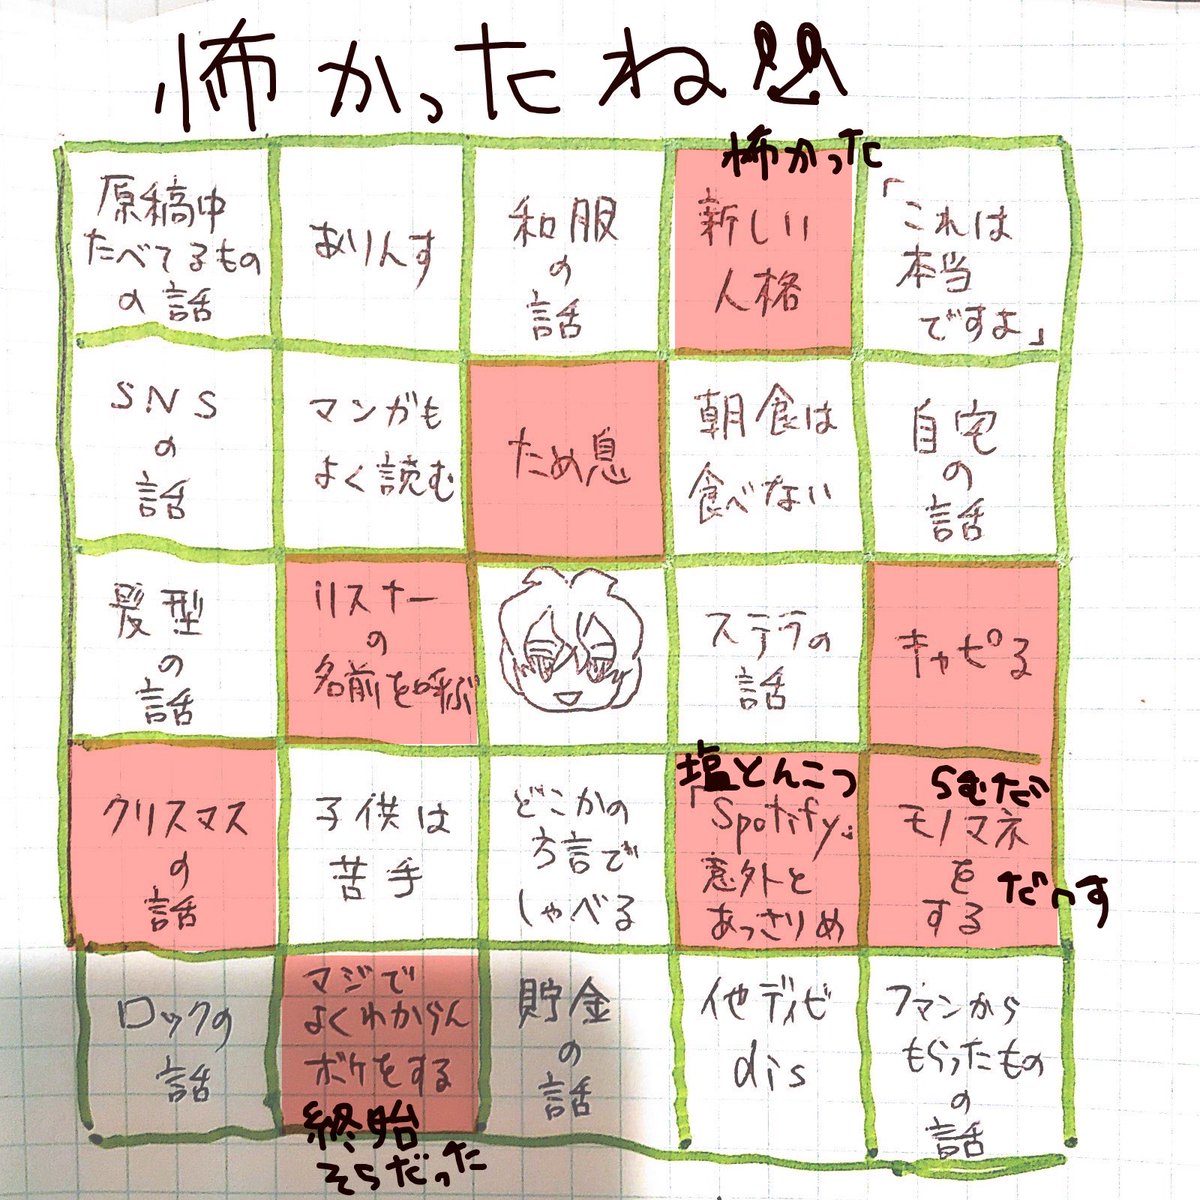 怖かったね!!
怖かった
原稿中
たべてるもの
の話
ありんす
和服
の
話
新しい
人格
「これは
本当
ですよ」
SNS
の
話
マンガも
よく読む
ため息
朝食は
食べない
自宅
の
話
髪型
の
話
リスナー
の
名前を呼ぶ
ステラの
話
キャピる
クリスマス
の
話
子供は
苦手
どこかの
方言で
しゃべる
塩とんこつ
「Spotify」
意外と
あっさりめ
らむだ
モノマネ
を
する
だっす
ロックの
話
マジで
よくわからん
ボケをする
終始
そらだった
貯金
の
話
他ディビ
dis
ファンから
もらったもの
の
話